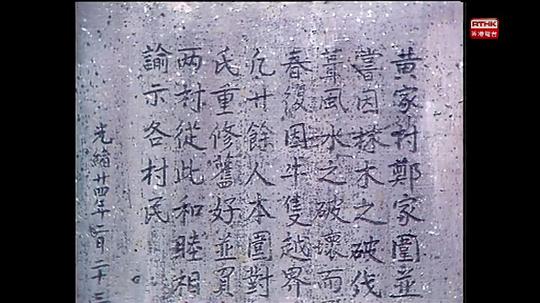 RTHK
香港電台
黃家村鄭家圍並
嘗因林木之破伐
葺風水之破壞而
春復因牛隻越界
廿餘人本圍對
氏重修舊好並買
两村從此和睦相
諭示各村民
光緒廿四年二月二十三